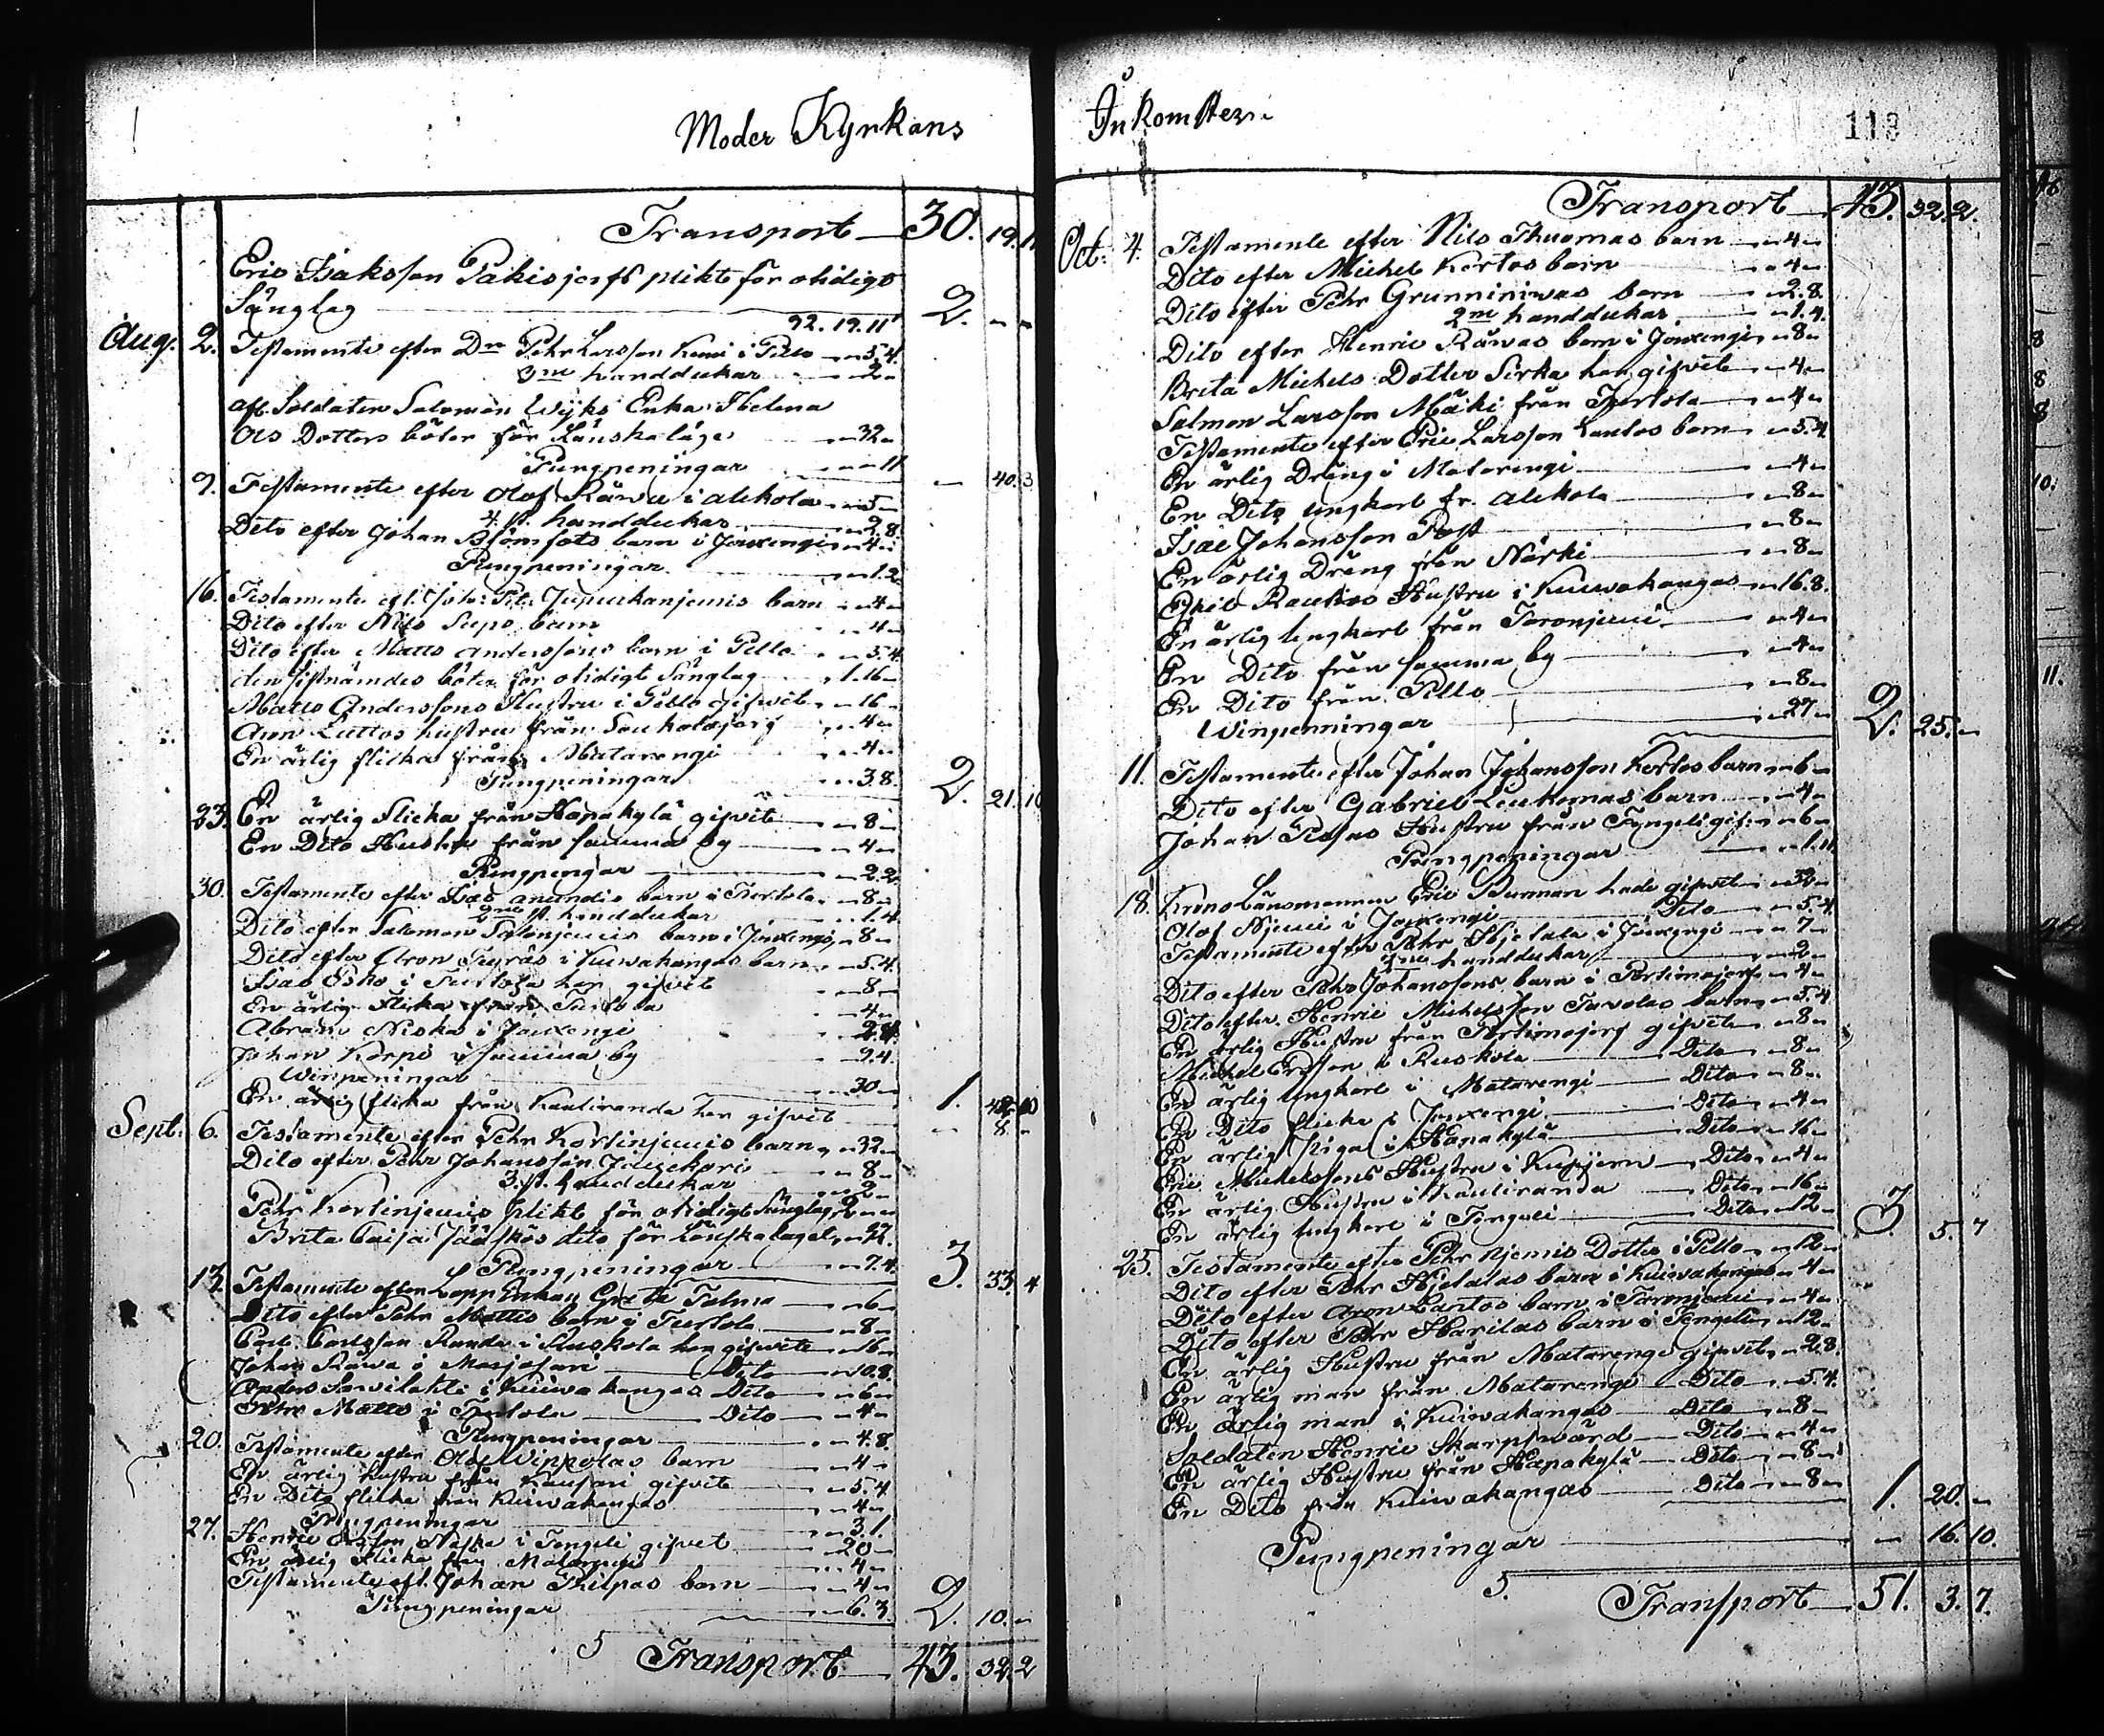 Moder Kyrkans
Transport 30. 19. 11
Eric Isaksson Pakisjerfs plikt för otidigt
Sänglag 2. " "
92. 19. 11
Aug. 2. Testamente efter Dn Pehr Larsson Kemi i Pello " 5.4.
3ne handdukar " 2 "
afl. Soldaten Salomon Wijks Enka Helena
Ols Dotters böter för Länskaläge " 32 "
Pungpeningar " " 11 — 40. 3
9. Testamente efter Olof Räwa i Alekola " 5 "
4 st. handdukar " 2.8.
Dito efter Johan Björnfots barn i Jouxengi " 4 "
Pungpeningar " 1.2
16. Testamente eft. Joh: Pet: Jupukanjemis barn " 4 "
Dito efter Nils Seps barn " 4 "
Dito efter Matts Anderssons barn i Pello " 5.4.
den sistnämndes böter för otidigt Sänglag " 1.16 "
Matts Anderssons Hustru i Pello gifvit " 16 "
Aron Luttos hustru från Soukolojerf " 4 "
En ärlig flicka från Matarengi " 4 "
Pungpeningar " 3.8. 2. 21. 10
23. En ärlig Flicka från Hapakylä gifvit " 8 "
En Dito Hustru från samma by " 4 "
Pungpengar " 2.2.
30. Testamente efter Isac Anundis barn i Turtola " 8 "
2ne st. handdukar " 1.4
Dito efter Salomon barn i Jouxengi " 8 "
Dito efter Aron i Kuiwakangas barn " 5.4.
Isac Esko i Turtola har gifvit " 8 "
En ärlig Flicka från Turtola " 4 "
Abram Niska i Jouxengi " 2.4.
Johan Korpi i samma by " 2.4.
Winpeningar " 30 " 1. 42. 10
En ärlig flicka från Kauliranda har gifvit — 8. "
Sept. 6. Testamente efter Pehr Kortinjemis barn " 32 "
Dito efter Pehr Johansson " 8 "
3. st. handdukar " 2 "
Pehr Kortinjemis plikt för otidigt Sänglag 2 " "
Brita Caisa Jääskös dito för Länskalaget " 32.
Pungpeningar " 7.4. 3. 33. 4
13. Testamente efter Lapp Enkan Greta Tolma " 6 "
Dito efter Pehr Mattis barn i Turtola " 8 "
Carl Carlsson Randa i Ruskola har gifvit " 16 "
Johan Räwa i Marjosari Dito " 10.8.
Anders Sarvilahti i Kuiwakangas Dito " 6 "
Pehr Matts i Turtola Dito " 4 "
Pungpeningar " 4.8.
20. Testamente efter Olof Wippolas barn " 4 "
En ärlig hustru från gifvit " 5.4
En Dito flicka från Kuiwakangas " 4 "
Pungpeningar " 3.1.
27. Henric Ersson Niska i Tengeli gifvet 20 "
En ärlig Flicka från Matarengi " 4 "
Testamente eft. Johan Philpas barn " 4 "
Pungpeningar " 6.3. 2. 10. "
5 Transport 43. 32. 2
Inkomster
113
Transport 43. 32. 2.
Oct: 4. Testamente efter Nils Thuomas barn " 4 "
Dito efter Michel Kortos barn " 4 "
Dito efter Pehr Grunniniwas barn " 2.8.
2ne handdukar " 1.4.
Dito efter Henric Räwas barn i Jouxengi " 8 "
Brita Michels Dotter Sirka har gifvit " 4 "
Salmon Larsson Mäki från Turtola " 4 "
Testamente efter Eric Larsson Lantos barn " 5.4.
En ärlig Dräng i Matarengi " 4 "
En Dito ungkarl fr. Alekola " 8 "
Isac Johansson Post " 8 "
En ärlig Dräng från Närki " 8 "
Eskil Rautios Hustru i Kuiwakangas " 16.8.
En ärlig Ungkarl från Taronjemi " 4 "
En Dito från samma by " 4 "
En Dito från Pello " 8 "
Winpenningar " 27 " 2. 25. "
11. Testamente efter Johan Johansson Kortos barn " 6 "
Dito efter Gabriel Leukumas barn " 4 "
Johan Hustru från Tengeli gif: " 6 "
Pungpeningar " 1.11
18. Krono Länsmannen Eric Burman hade gifvit " 32 "
Olof Njemi i Jouxengi Dito " 5.4.
Testamente efter Pehr Hjetala i Jouxengi " 7 "
3ne handdukar " 2 "
Dito efter Pehr Johanssons barn i Portimojerf " 4 "
Dito efter Henric Michelsson Tavolas barn " 5.4.
En ärlig Hustru från Portimojerf gifvit " 8 "
Michel Ersson i Ruskola Dito " 8 "
En ärlig Ungkarl i Matarengi Dito " 8 "
En Dito flicka i Jouxengi Dito " 4 "
En ärlig Piga i Hapakylä Dito " 16 "
Eric Michelssons Hustru i Kuijern Dito " 4 "
En ärlig Hustru i Kauliranda Dito " 16 "
En ärlig Ungkarl i Tengeli Dito " 12 " 3. 5. 7
25. Testamente efter Pehr Njemis Dotter i Pello " 12 "
Dito efter Pehr Hietalas barn i Kuiwakangas " 4 "
Dito efter Aron Lantos barn i Taronjemi " 4 "
Dito efter Pehr Harilas barn i Tengeli " 12 "
En ärlig Hustru från Matarengi gifvit " 2.8.
En ärlig man från Matarengi Dito " 5.4.
En ärlig man i Kuiwakangas Dito " 8 "
Soldaten Henric Skarpswärd Dito " 4 "
En ärlig Hustru från Hapakylä Dito " 8 "
En Dito från Kuiwakangas Dito " 8 " 1. 20. "
Pungpeningar — 16. 10.
5. Transport 51. 3. 7.